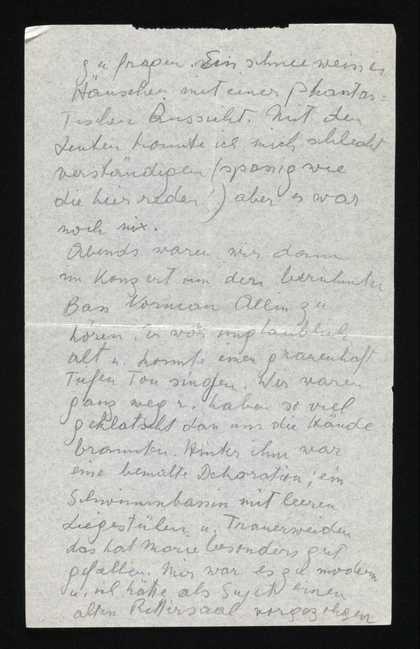 zu fragen. Ein schneeweisses
Häuschen mit einer phantas=
tischen Aussicht. Mit den
Leuten konnte ich mich schlecht
verständigen (spassig wie
die hier reden!) aber es war
noch nix.
Abends waren wir dann
im Konzert um den berühmten
Bass Norman Allin zu
hören. Er war unglaublich
alt u. konnte einen grauenhaft
tiefen Ton singen. Wir waren
ganz weg u. haben so viel
geklatscht dan uns die Hände
brannten. Hinter ihm war
eine bemalte Dekoration; ein
Schwimmbassin mit leeren
Liegestühlen u. Trauerweiden
das hat Marie besonders gut
gefallen. Mir war es zu modern
u. ich hätte als Sujet einen
alten Rittersaal vorgezogen